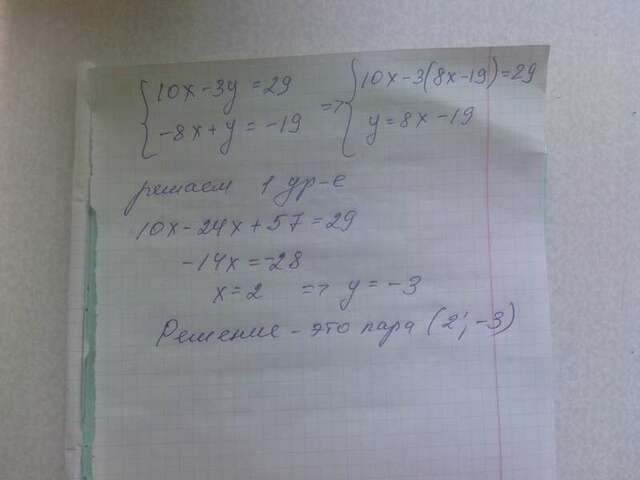 {10x-3y=29 => {10x-3(8x-19)=29
{-8x+y=-19 {y=8x-19
решаем 1 ур-е
10x-24x+57=29
-14x=-28
x=2 => y=-3
Решение - это пара (2; -3)